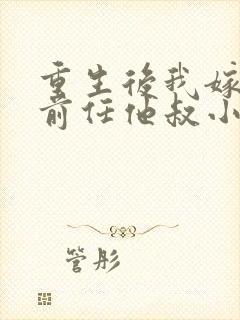 重生後我嫁
前任他叔小
管彤